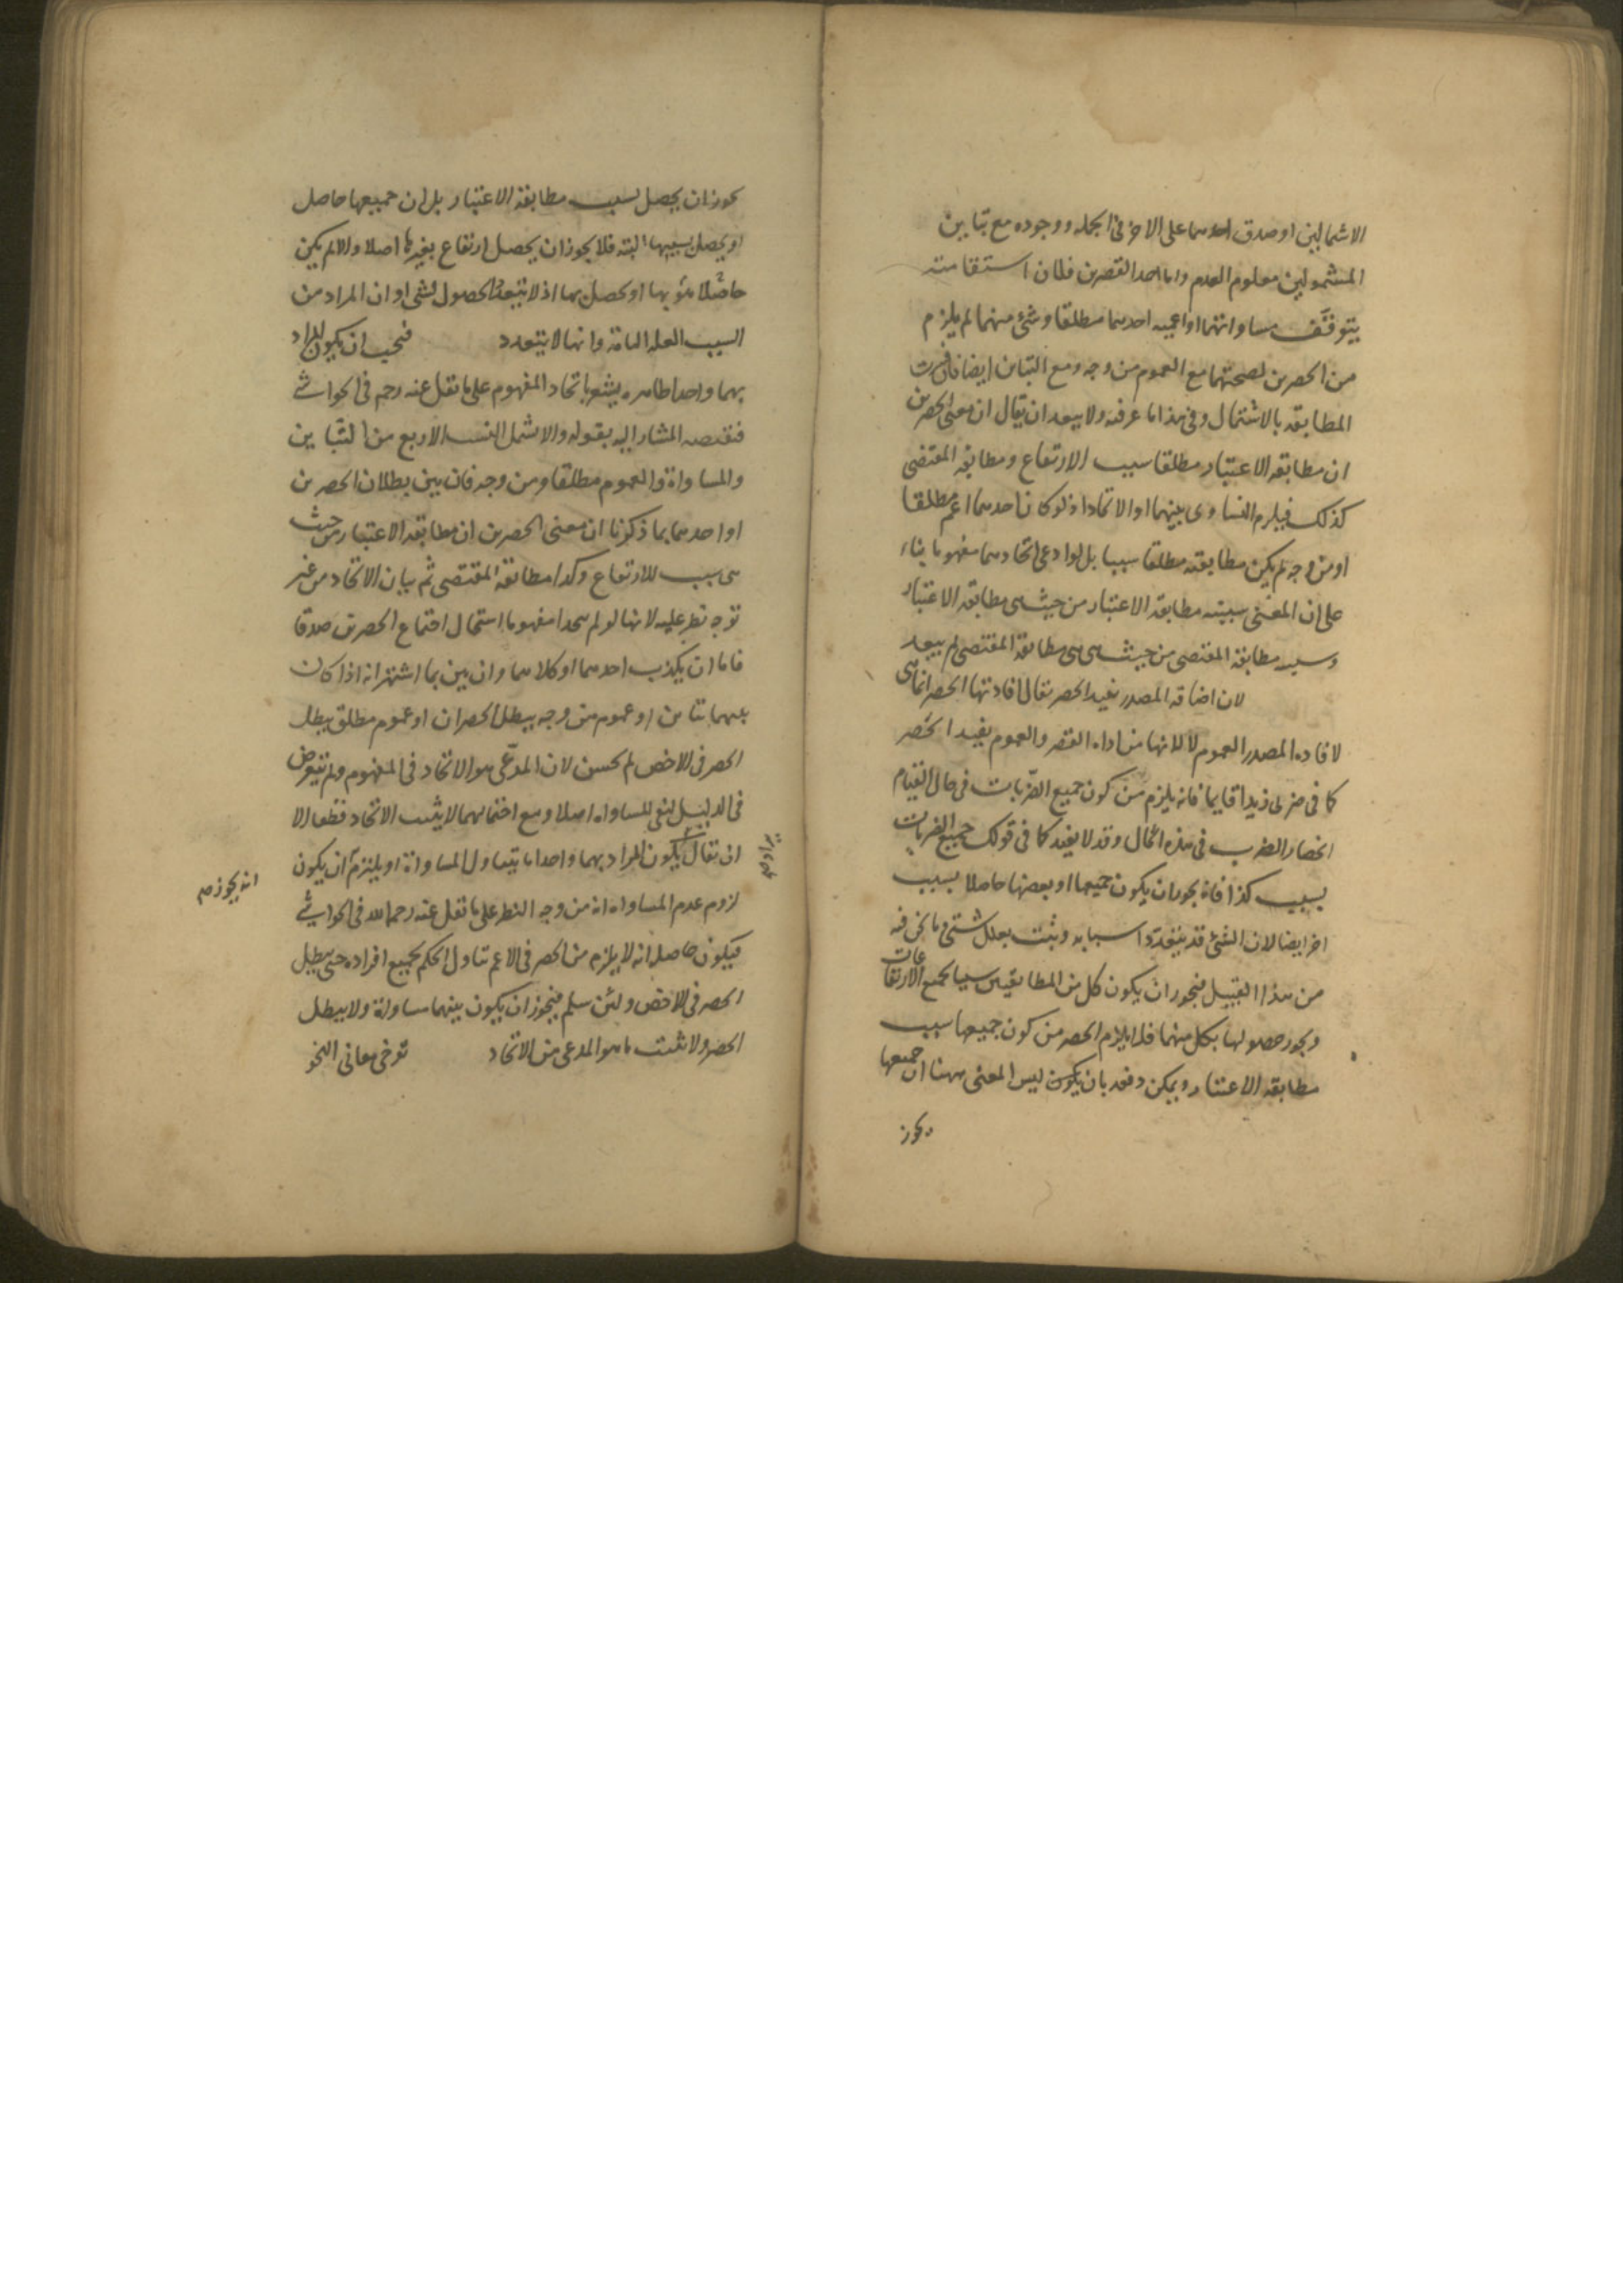 الاشمالين او صدق احدهما على الاخر فى الجمله ووجوده مع تباين
المشمولين معلوم العدم واما احد القصرين فلان استقامته
يتوقف مساواتهما او اعميه احدهما مطلقا وشئ منهما لم يلزم
من الحصرين لصحتهما مع العموم من وجه ومع التباين ايضا فان فسرت
المطابقه بالاشتمال وفى هذا ما عرفته ولا يبعد ان يقال ان معنى الحصرين
ان مطابقه الاعتبار مطلقا سبب الارتفاع ومطابقه المقتضى
كذلك فيلزم التساوى بينهما او الاتحاد اذ لو كان احدهما اعم مطلقا
او من وجه لم يكن مطابقته مطلقا سببا بل لو ادعى اتحادهما مفهوما بناء
على ان المعنى سببيه مطابقه الاعتبار من حيث هى مطابقه الاعتبار
وسببيه مطابقة المقتضى من حيث هى هى مطابقة المقتضى لم يبعد
لان اضافه المصدر تفيد الحصر يقال افادتها الحصر انما هى
لافاده المصدر العموم لا لانها من اداه القصر والعموم يفيد الحصر
كما فى ضربى زيدا قايما فانه يلزم من كون جميع الضربات فى حال القيام
انحصار الضرب فى هذه الحال وقد لا يفيد كما فى قولك جميع الضربات
بسبب كذا فانه يجوز ان يكون جميعها او بعضها حاصلا بسبب
اخر ايضا لان الشئ قد يتعدد اسبابه ويثبت بعلل شتى وما نحن فيه
من هذا القبيل فيجوز ان يكون كل من المطابقتين سببا لجميع الارتفاعات
ويجوز حصولها بكل منهما فلا يلزم الحصر من كون جميعها سبب
مطابقه الاعتبار ويمكن دفعه بان يكون ليس المعنى ههنا ان جميعها
يجوز
يجوز ان يحصل بسبب مطابقة الاعتبار بل ان جميعها حاصل
او يحصل بسببها البته فلا يجوز ان يحصل ارتفاع بغيرها اصلا والا لم يكن
حاصلا بها او يحصل بها اذ لا يتعدد الحصول لشئ او ان المراد من
السبب العله التامة وانها لا يتعدد فيجب ان يكون المراد
بهما واحدا ظاهره يشعر باتحاد المفهوم على ما نقل عنه رحمه فى الحواشى
فنقيضه المشار اليه بقوله والا يشمل النسب الاربع من التباين
والمساواة والعموم مطلقا ومن وجه فان بين بطلان الحصرين
او احدهما بما ذكرنا ان معنى الحصرين ان مطابقه الاعتبار من حيث
هى سبب للارتفاع وكذا مطابقة المقتضى ثم بيان الاتحاد من غير
توجه نظر عليه لانها لو لم يتحدا مفهوما استحال اجتماع الحصرين صدقا
فاما ان يكذب احدهما او كلاهما وان بين بما اشتهر انه اذا كان
بينهما تباين او عموم من وجه يبطل الحصران او عموم مطلق يبطل
الحصر فى الاخص لم يحسن لان المدعى هو الاتحاد فى المفهوم ولم يتعرض
فى الدليل لنفى المساواه اصلا ومع احتمالهما لا يثبت الاتحاد قطعا الا
ان يقال يكون المراد بهما واحدا ما يتناول المساواة او يلتزم ان يكون
انه يجوز صح
لزوم عدم المساواه انه من وجه النظر على ما نقل عنه رحمه الله فى الحواشى
فيكون حاصله انه لا يلزم من الحصر فى الاعم تناول الحكم لجميع افراده حتى يبطل
الحصر فى الاخص ولئن سلم فيجوز ان يكون بينهما مساواة ولا يبطل
الحصر ولا يثبت ما هو المدعى من الاتحاد توخى معانى النحو